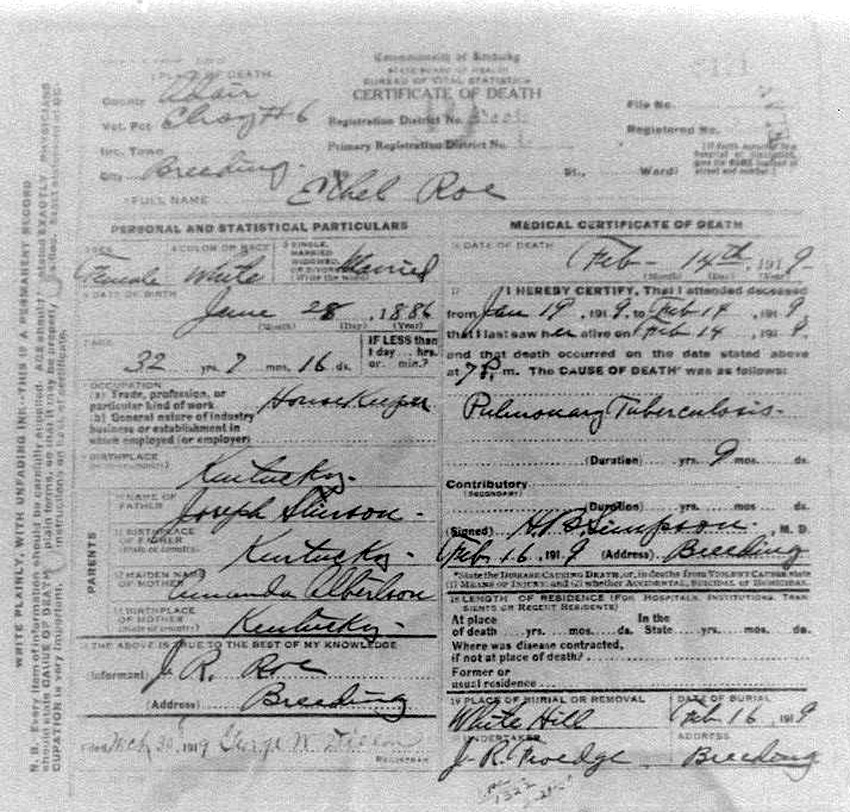 Commonwealth of Kentucky
STATE BOARD OF HEALTH
BUREAU OF VITAL STATISTICS
CERTIFICATE OF DEATH
PLACE OF DEATH
County Adair
Vot. Pct Elroy #6
Inc. Town
City Breeding.
Registration District No.
Primary Registration District No.
File No.
Registered No.
St., Ward)
FULL NAME Ethel Roe
PERSONAL AND STATISTICAL PARTICULARS
SEX Female
4 COLOR OR RACE White
5 SINGLE, MARRIED WIDOWED, OR DIVORCED (Write the word) Married
6 DATE OF BIRTH
June 28, 1886
(Month) (Day) (Year)
7 AGE
32 yrs. 7 mos. 16 ds.
IF LESS than
1 day... hrs.
or. min.?
OCCUPATION
(a) Trade, profession, or
particular kind of work Housekeeper
(b) General nature of industry
business or establishment in
which employed (or employer)
BIRTHPLACE
Kentucky.
PARENTS
10 NAME OF
FATHER Joseph Stinson.
11 BIRTHPLACE
OF FATHER
(State or country) Kentucky.
12 MAIDEN NAME
OF MOTHER Amanda Albertson
13 BIRTHPLACE
OF MOTHER
(State or country) Kentucky.
THE ABOVE IS TRUE TO THE BEST OF MY KNOWLEDGE
(Informant) J. R. Roe
(Address) Breeding
Mch 30, 1919 George W. Dixon
REGISTRAR
MEDICAL CERTIFICATE OF DEATH
DATE OF DEATH
Feb- 14th, 1919.
(Month) (Day) (Year)
17 I HEREBY CERTIFY, That I attended deceased
from Jan 19, 1919, to Feb 14, 1919,
that I last saw her alive on Feb 14, 1919,
and that death occurred on the date stated above
at 7 P. m. The CAUSE OF DEATH* was as follows:
Pulmonary Tuberculosis.
(Duration) yrs. 9 mos. ds.
Contributory
(SECONDARY)
(Duration) yrs. mos. ds.
(Signed) H. B. Simpson., M. D.
Feb 16, 1919 (Address) Breeding
*State the DISEASE CAUSING DEATH, or, in deaths from VIOLENT CAUSES state
(1) MEANS OF INJURY; and (2) whether ACCIDENTAL, SUICIDAL or HOMICIDAL.
18 LENGTH OF RESIDENCE (FOR HOSPITALS, INSTITUTIONS, TRANSIENTS OR RECENT RESIDENTS)
At place In the
of death yrs. mos. ds. State yrs. mos. ds.
Where was disease contracted,
if not at place of death?
Former or
usual residence
19 PLACE OF BURIAL OR REMOVAL DATE OF BURIAL
White Hill Feb 16, 1919
UNDERTAKER ADDRESS
J. R. Froedge. Breeding
WRITE PLAINLY, WITH UNFADING INK—THIS IS A PERMANENT RECORD